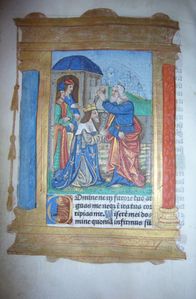 Domine ne in furore tuo ar
guas me neqꝫ ī ira tua cor
ripias me. Miserere mei do
mine quoniā infirmus sū